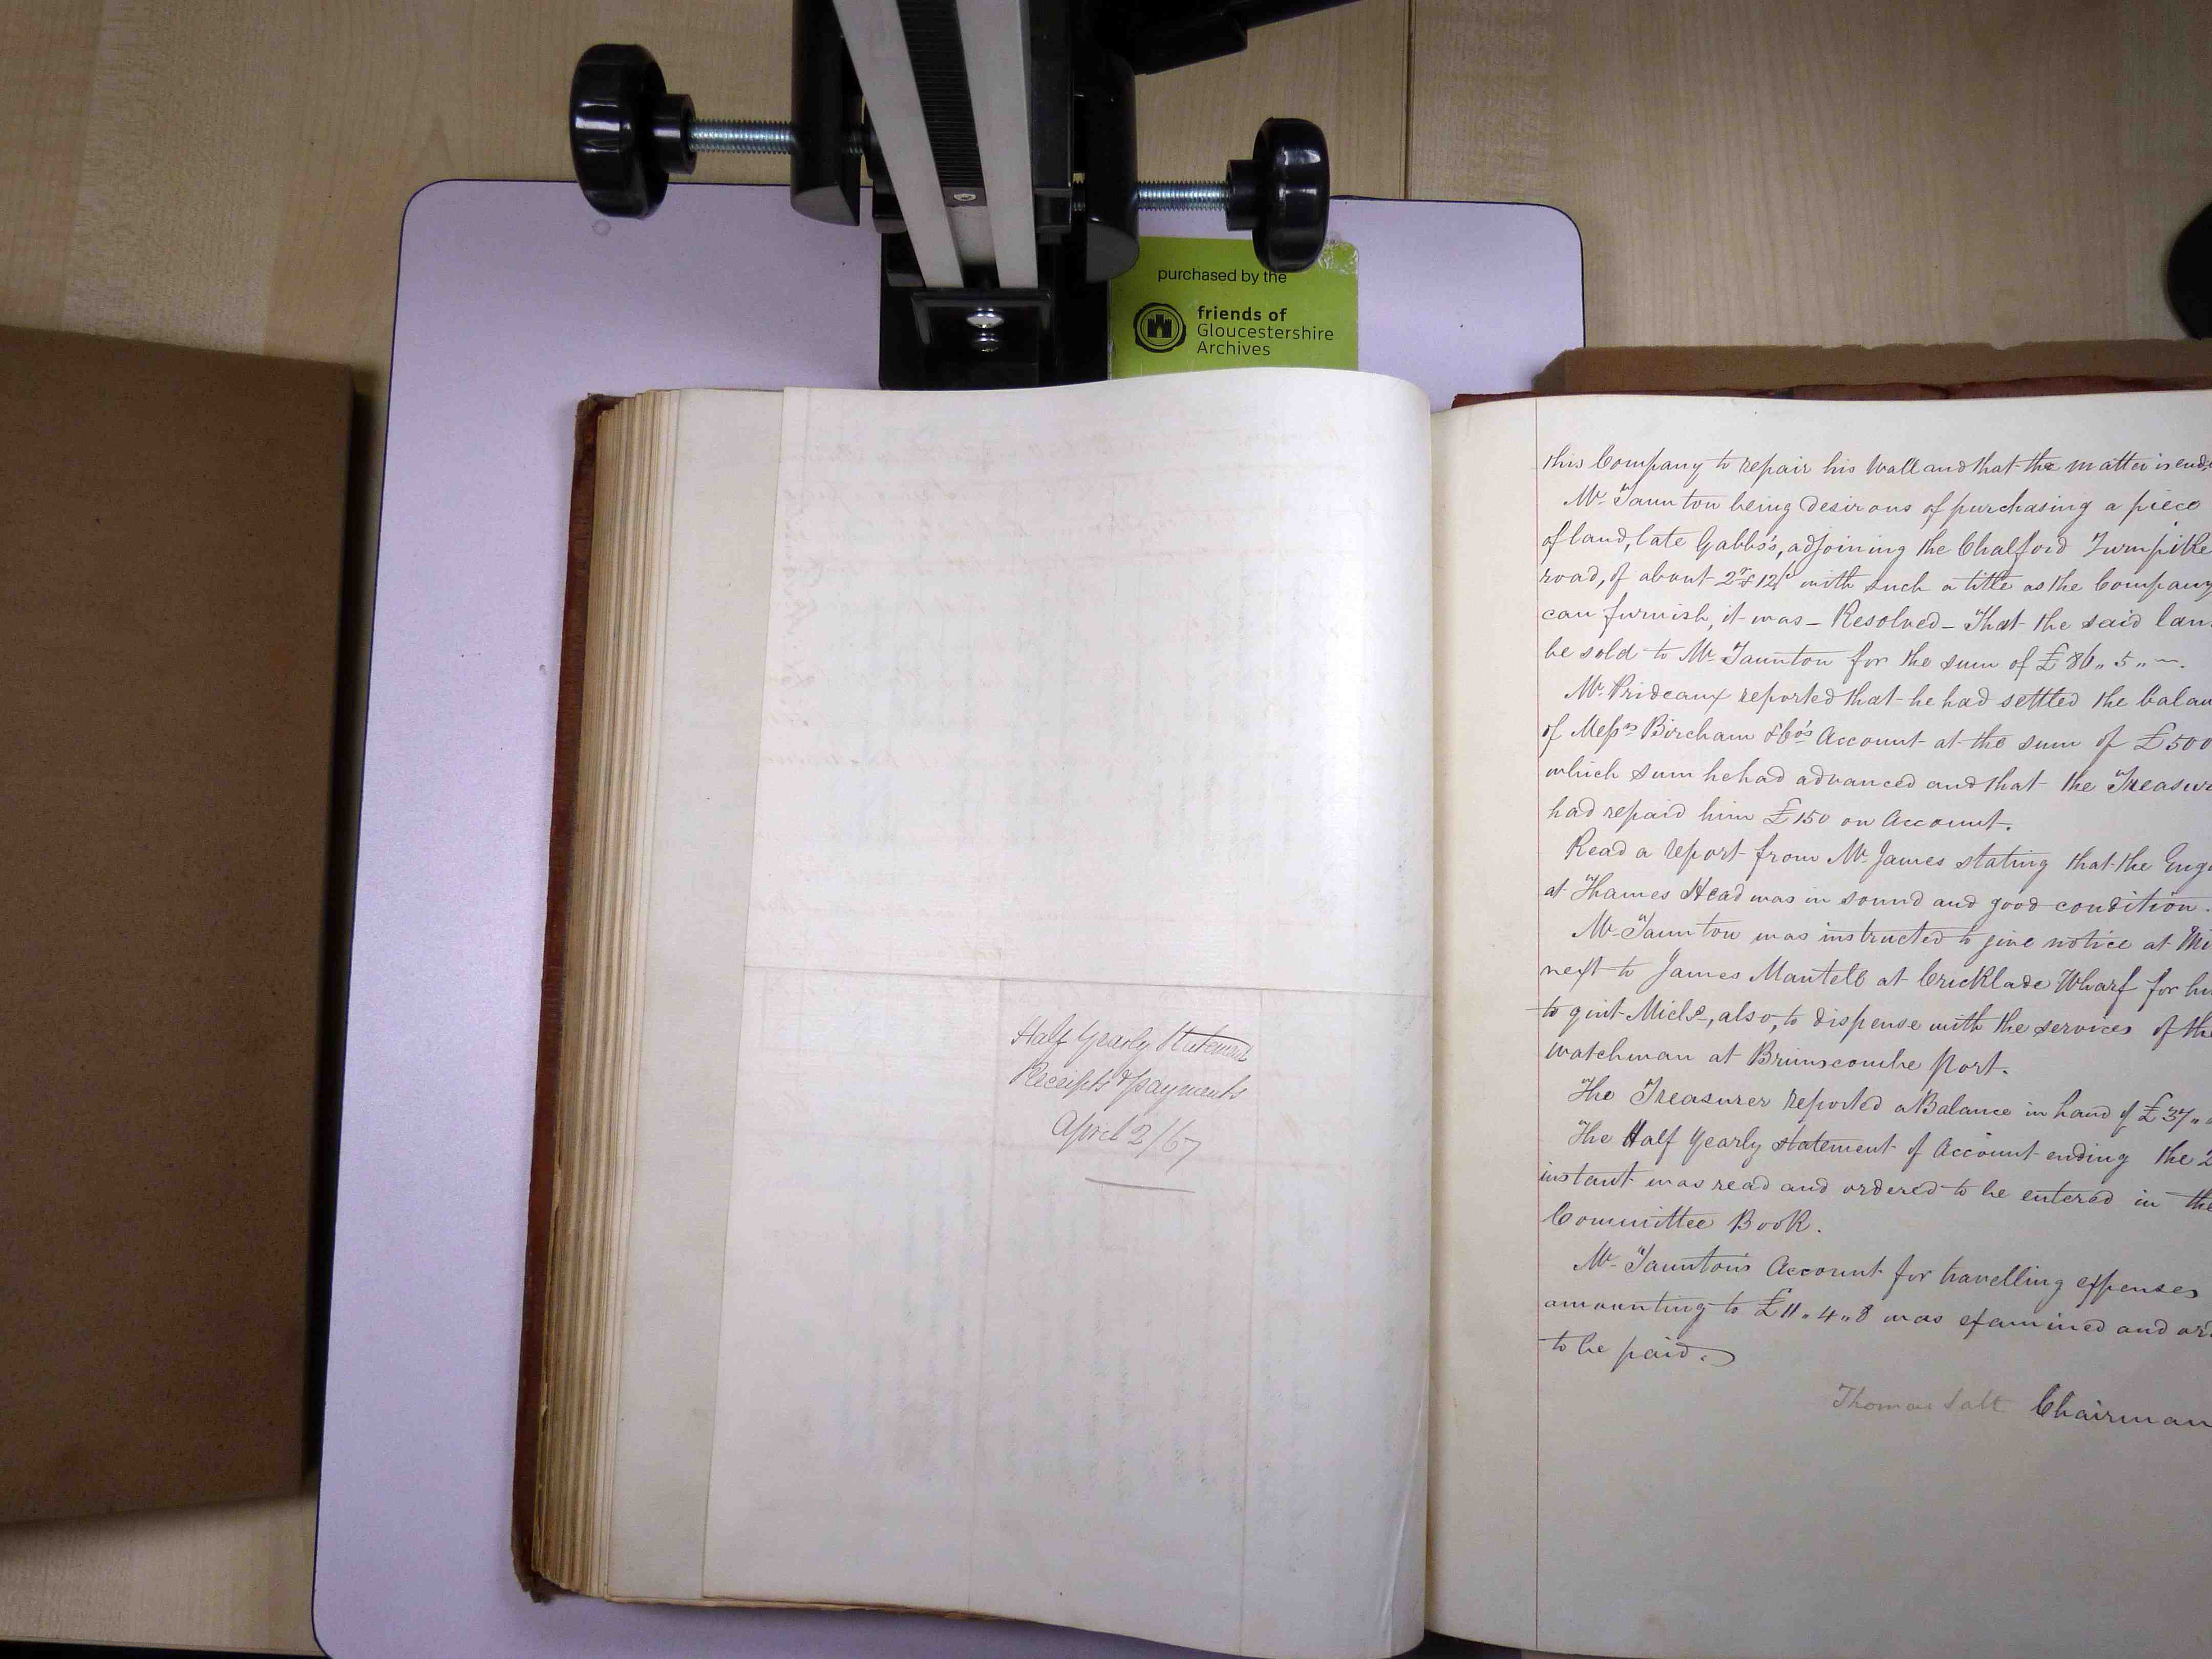 purchased by the
friends of
Gloucestershire
Archives
Half Yearly Statement
Receipts & payments
April 2/67
this Company to repair his Wall and that the matter is
Mr. Taunton being desirous of purchasing a piece
of land, late Gabb's, adjoining the Chalford Turnpike
road, of about 2r & 12p with such a title as the Company
can furnish, it was – Resolved – That the said
be sold to Mr. Taunton for the sum of £86,, 5,, ~.
Mr. Prideaux reported that he had settled the
of Messrs Bircham & Co's Account at the sum of £500
which sum he had advanced and that the
had repaid him £150 on Account.
Read a report from Mr. James stating that the
at Thames Head was in sound and good condition.
Mr. Taunton was instructed to give notice at
next to James Mantell at Cricklade Wharf for
to quit Michs, also, to dispense with the services of the
Watchman at Brimscombe Port.
The Treasurer reported a Balance in hand of £37,,
The Half Yearly statement of Account ending the 2
instant was read and ordered to be entered in the
Committee Book.
Mr. Taunton's Account for travelling expenses
amounting to £11,, 4,, 8 was examined and
to be paid.
Thomas Salt Chairman